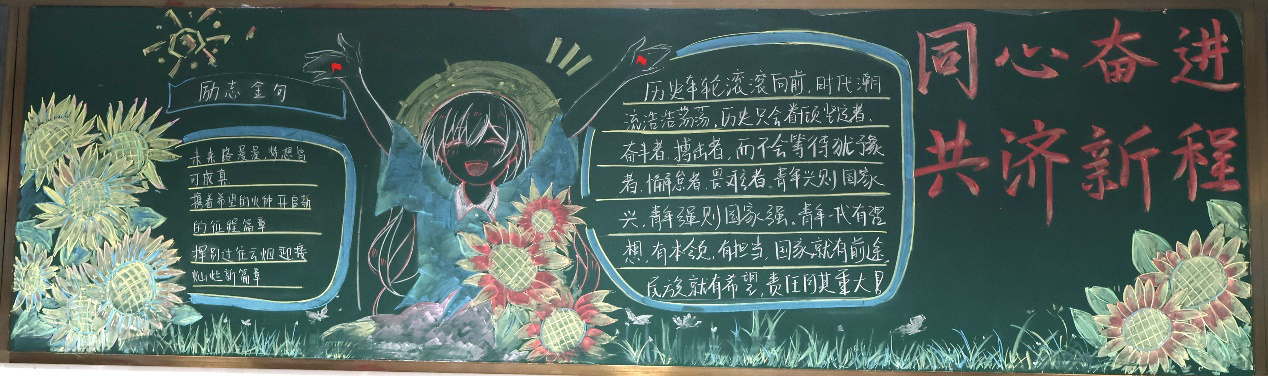 励志金句
未来路漫漫,梦想皆
可成真
携着希望的火种开启新
的征程篇章
挥别过往云烟迎接
灿烂新篇章
历史车轮滚滚向前,时代潮
流浩浩荡荡,历史只会眷顾坚定者、
奋斗者、搏击者,而不会等待犹豫
者、懈怠者、畏难者。青年兴则国家
兴,青年强则国家强。青年一代有理
想、有本领、有担当,国家就有前途,
民族就有希望,责任
重大
同心奋进
共济新程